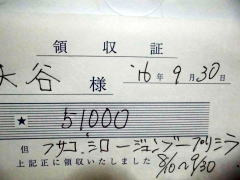 領収証
大谷 様 '16年9月30日
★ 51000
但 フサコ、シロージュンブープリミラ
上記正に領収いたしました 8/10〜9/30